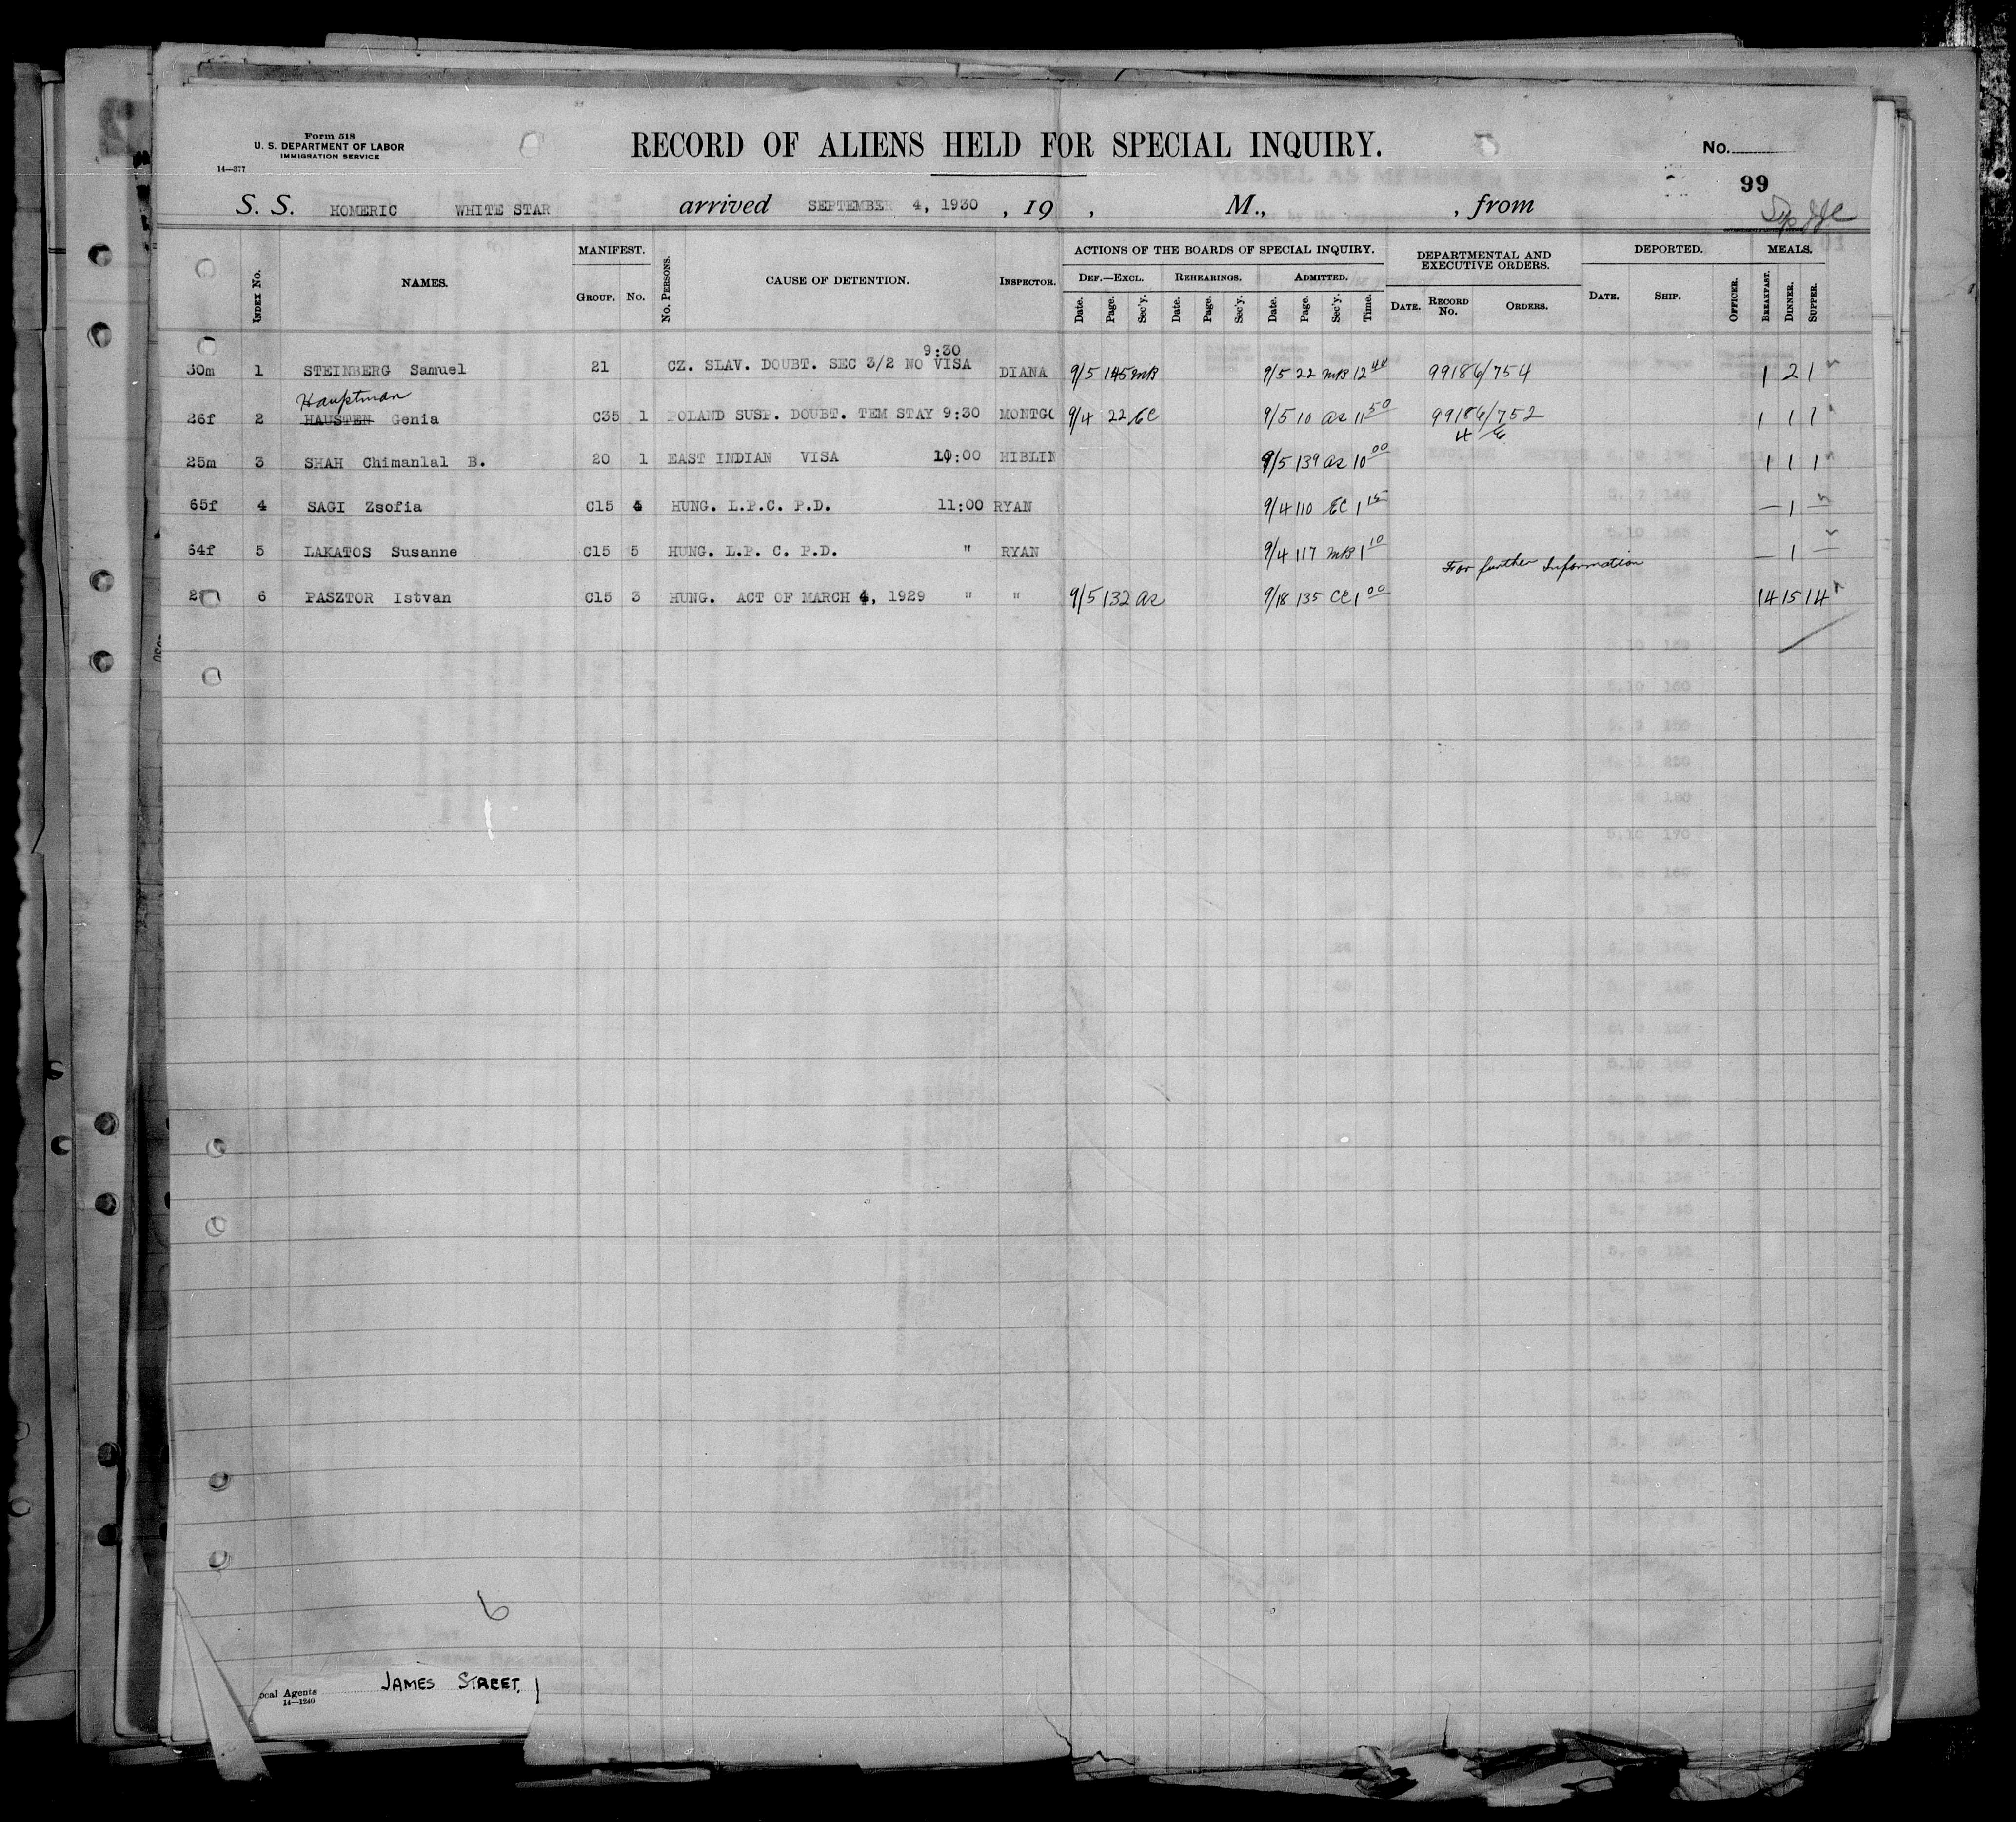 Form 518
U. S. DEPARTMENT OF LABOR
IMMIGRATION SERVICE
14—377
RECORD OF ALIENS HELD FOR SPECIAL INQUIRY.
No.
99
S. S. HOMERIC WHITE STAR arrived SEPTEMBER 4, 1930 , 19 , M., , from
INDEX No. NAMES. MANIFEST. GROUP. No. No. PERSONS. CAUSE OF DETENTION. INSPECTOR. ACTIONS OF THE BOARDS OF SPECIAL INQUIRY. DEF.—EXCL. Date. Page. Sec'y. REHEARINGS. Date. Page. Sec'y. ADMITTED. Date. Page. Sec'y. Time. DEPARTMENTAL AND EXECUTIVE ORDERS. DATE. RECORD No. ORDERS. DEPORTED. DATE. SHIP. OFFICER. MEALS. BREAKFAST. DINNER. SUPPER.
9:30
30m 1 STEINBERG Samuel 21 CZ. SLAV. DOUBT. SEC 3/2 NO VISA DIANA 9/5 145 MB 9/5 22 MB 12 40 99186/754 1 2 1
Hauptman
26f 2 HAUSTEN Genia C35 1 POLAND SUSP. DOUBT. TEM STAY 9:30 MONTGO 9/4 22 EC 9/5 10 AR 11 50 99186/752 1 1 1
25m 3 SHAH Chimanlal B. 20 1 EAST INDIAN VISA 10:00 HIBLIN 9/5 139 AR 10 00 1 1 1
65f 4 SAGI Zsofia C15 4 HUNG. L.P.C. P.D. 11:00 RYAN 9/4 110 EC 1 15 — 1 —
64f 5 LAKATOS Susanne C15 5 HUNG. L.P. C. P.D. " RYAN 9/4 117 MB 1 10 — 1 —
For further Information
6 PASZTOR Istvan C15 3 HUNG. ACT OF MARCH 4, 1929 " " 9/5 132 AR 9/18 135 CC 1 00 14 15 14
6
JAMES STREET,
ocal Agents
14—1240